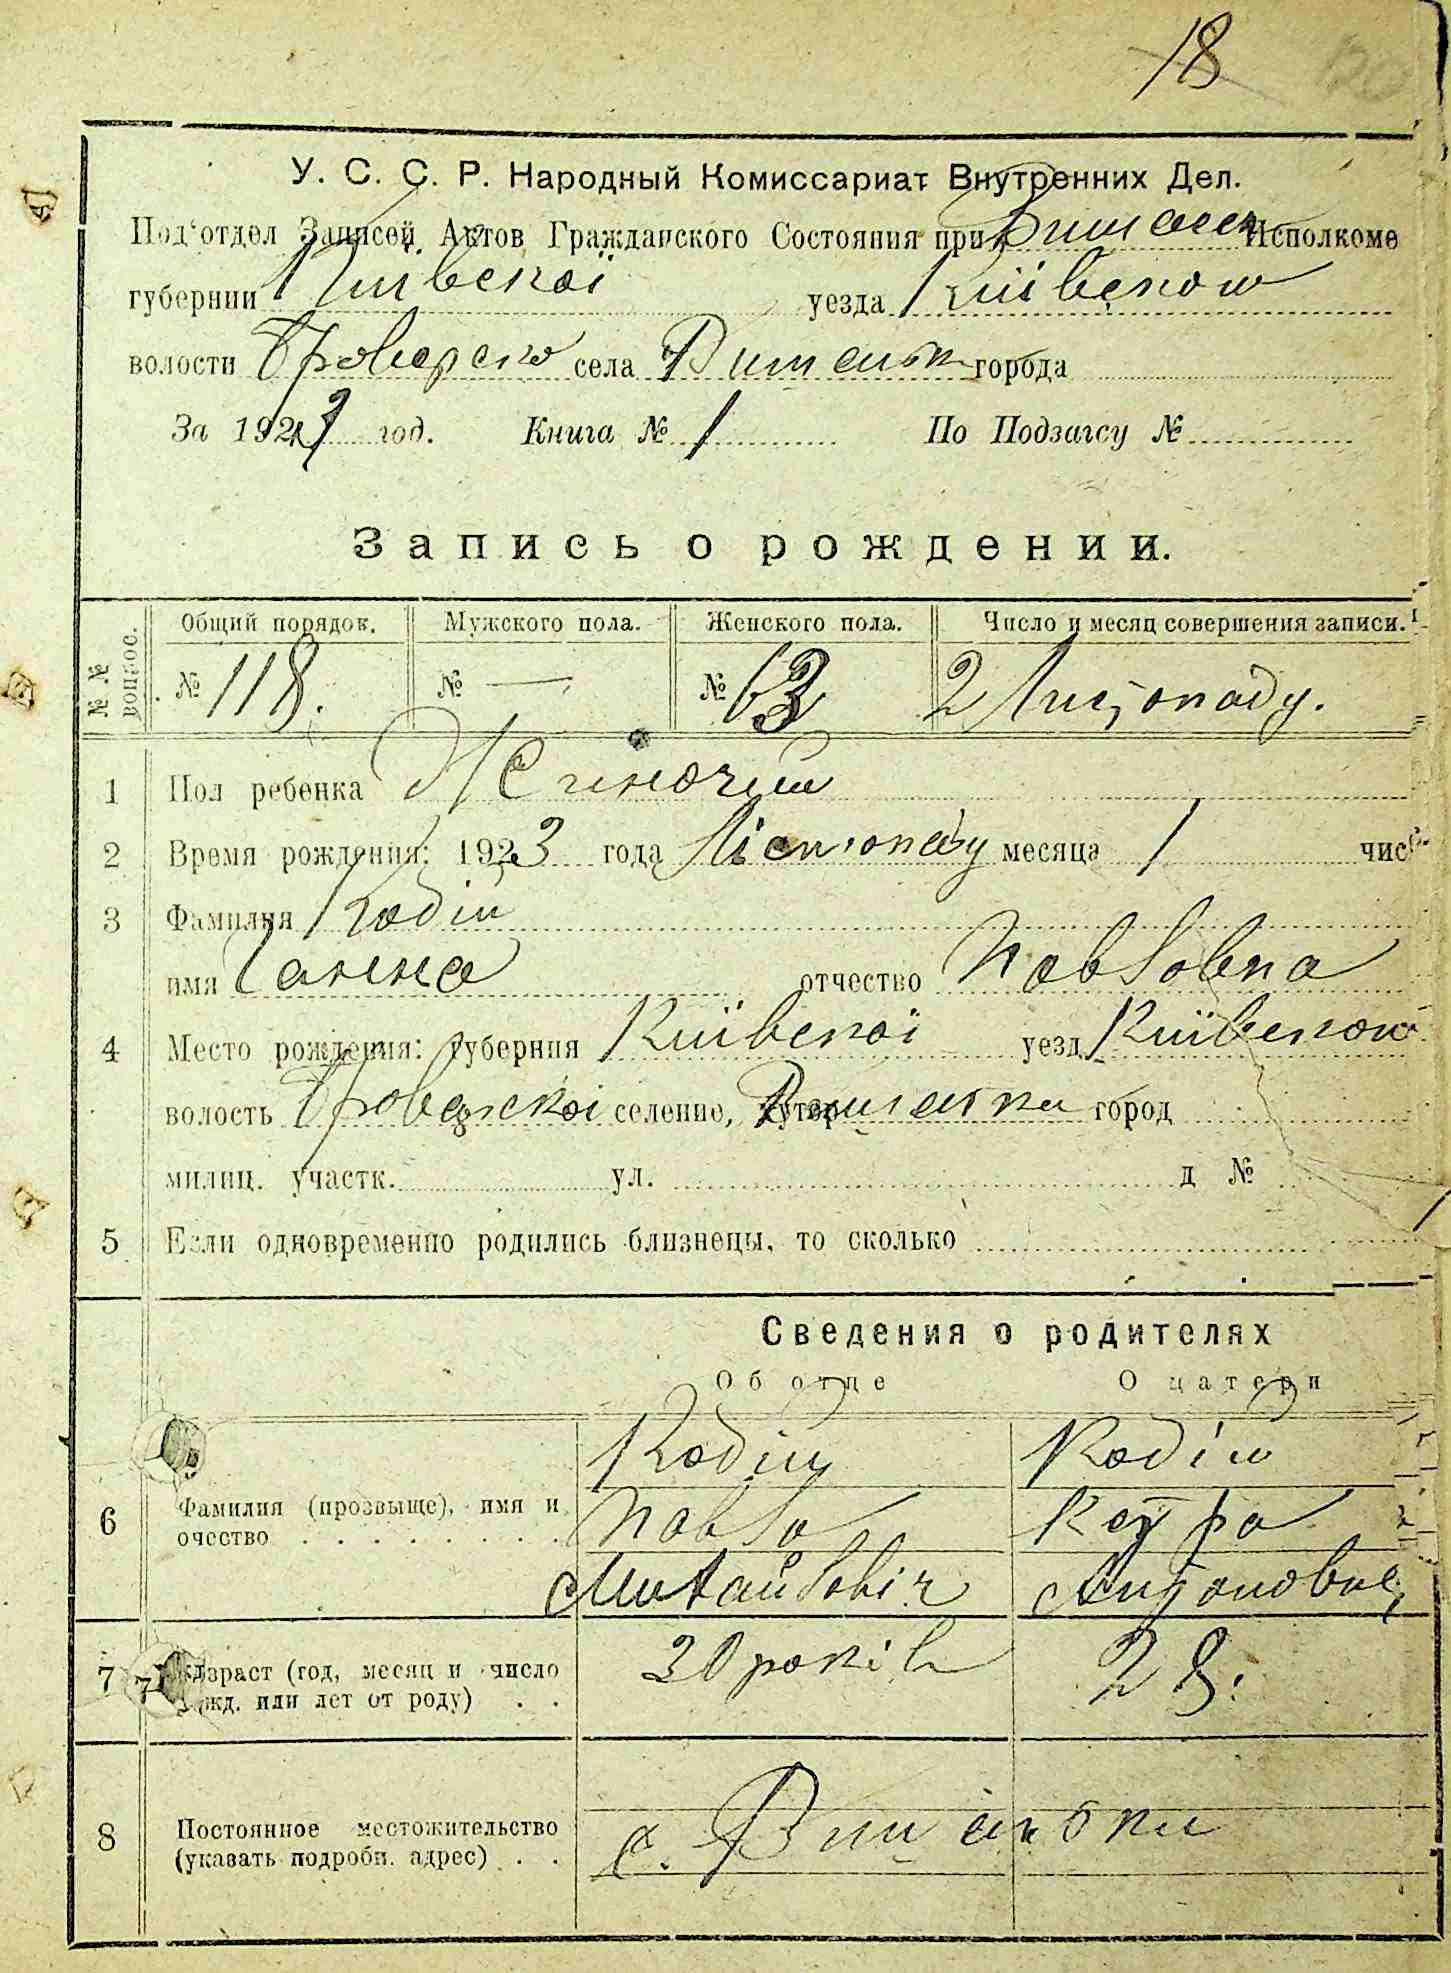 18
У. С. С. Р. Народный Комиссариат Внутренних Дел.
Под'отдел Записей Актов Гражданского Состояния при Вишенск Исполкоме
губернии Київскої уезда Київсково
волости Броварско села Вишеньк города
За 1923 год. Книга № 1 По Подзагсу №
Запись о рождении.
№№ вопрос. Общий порядок. Мужского пола. Женского пола. Число и месяц совершения записи.
№ 118. № — № 63 2 Листопаду.
1 Пол ребенка Жиночий
2 Время рождения: 1923 года Лістопаду месяца 1 чис
3 Фамилия Кодій
имя Ганна отчество Павловна
4 Место рождения: губерния Київскої уезд Київсково
волость Броварскої селение, хутор Вишеньки город
милиц. участк. ул. д №
5 Если одновременно родились близнецы, то сколько
Сведения о родителях
Об отце О матери
Кодій Кодій
6 Фамилия (прозвыще), имя и Павло
очество
Михайловіч Антоновна
7 7 Возраст (год, месяц и число 30 років 28.
рожд. или лет от роду)
8 Постоянное местожительство с. Вишеньки
(указать подробн. адрес)